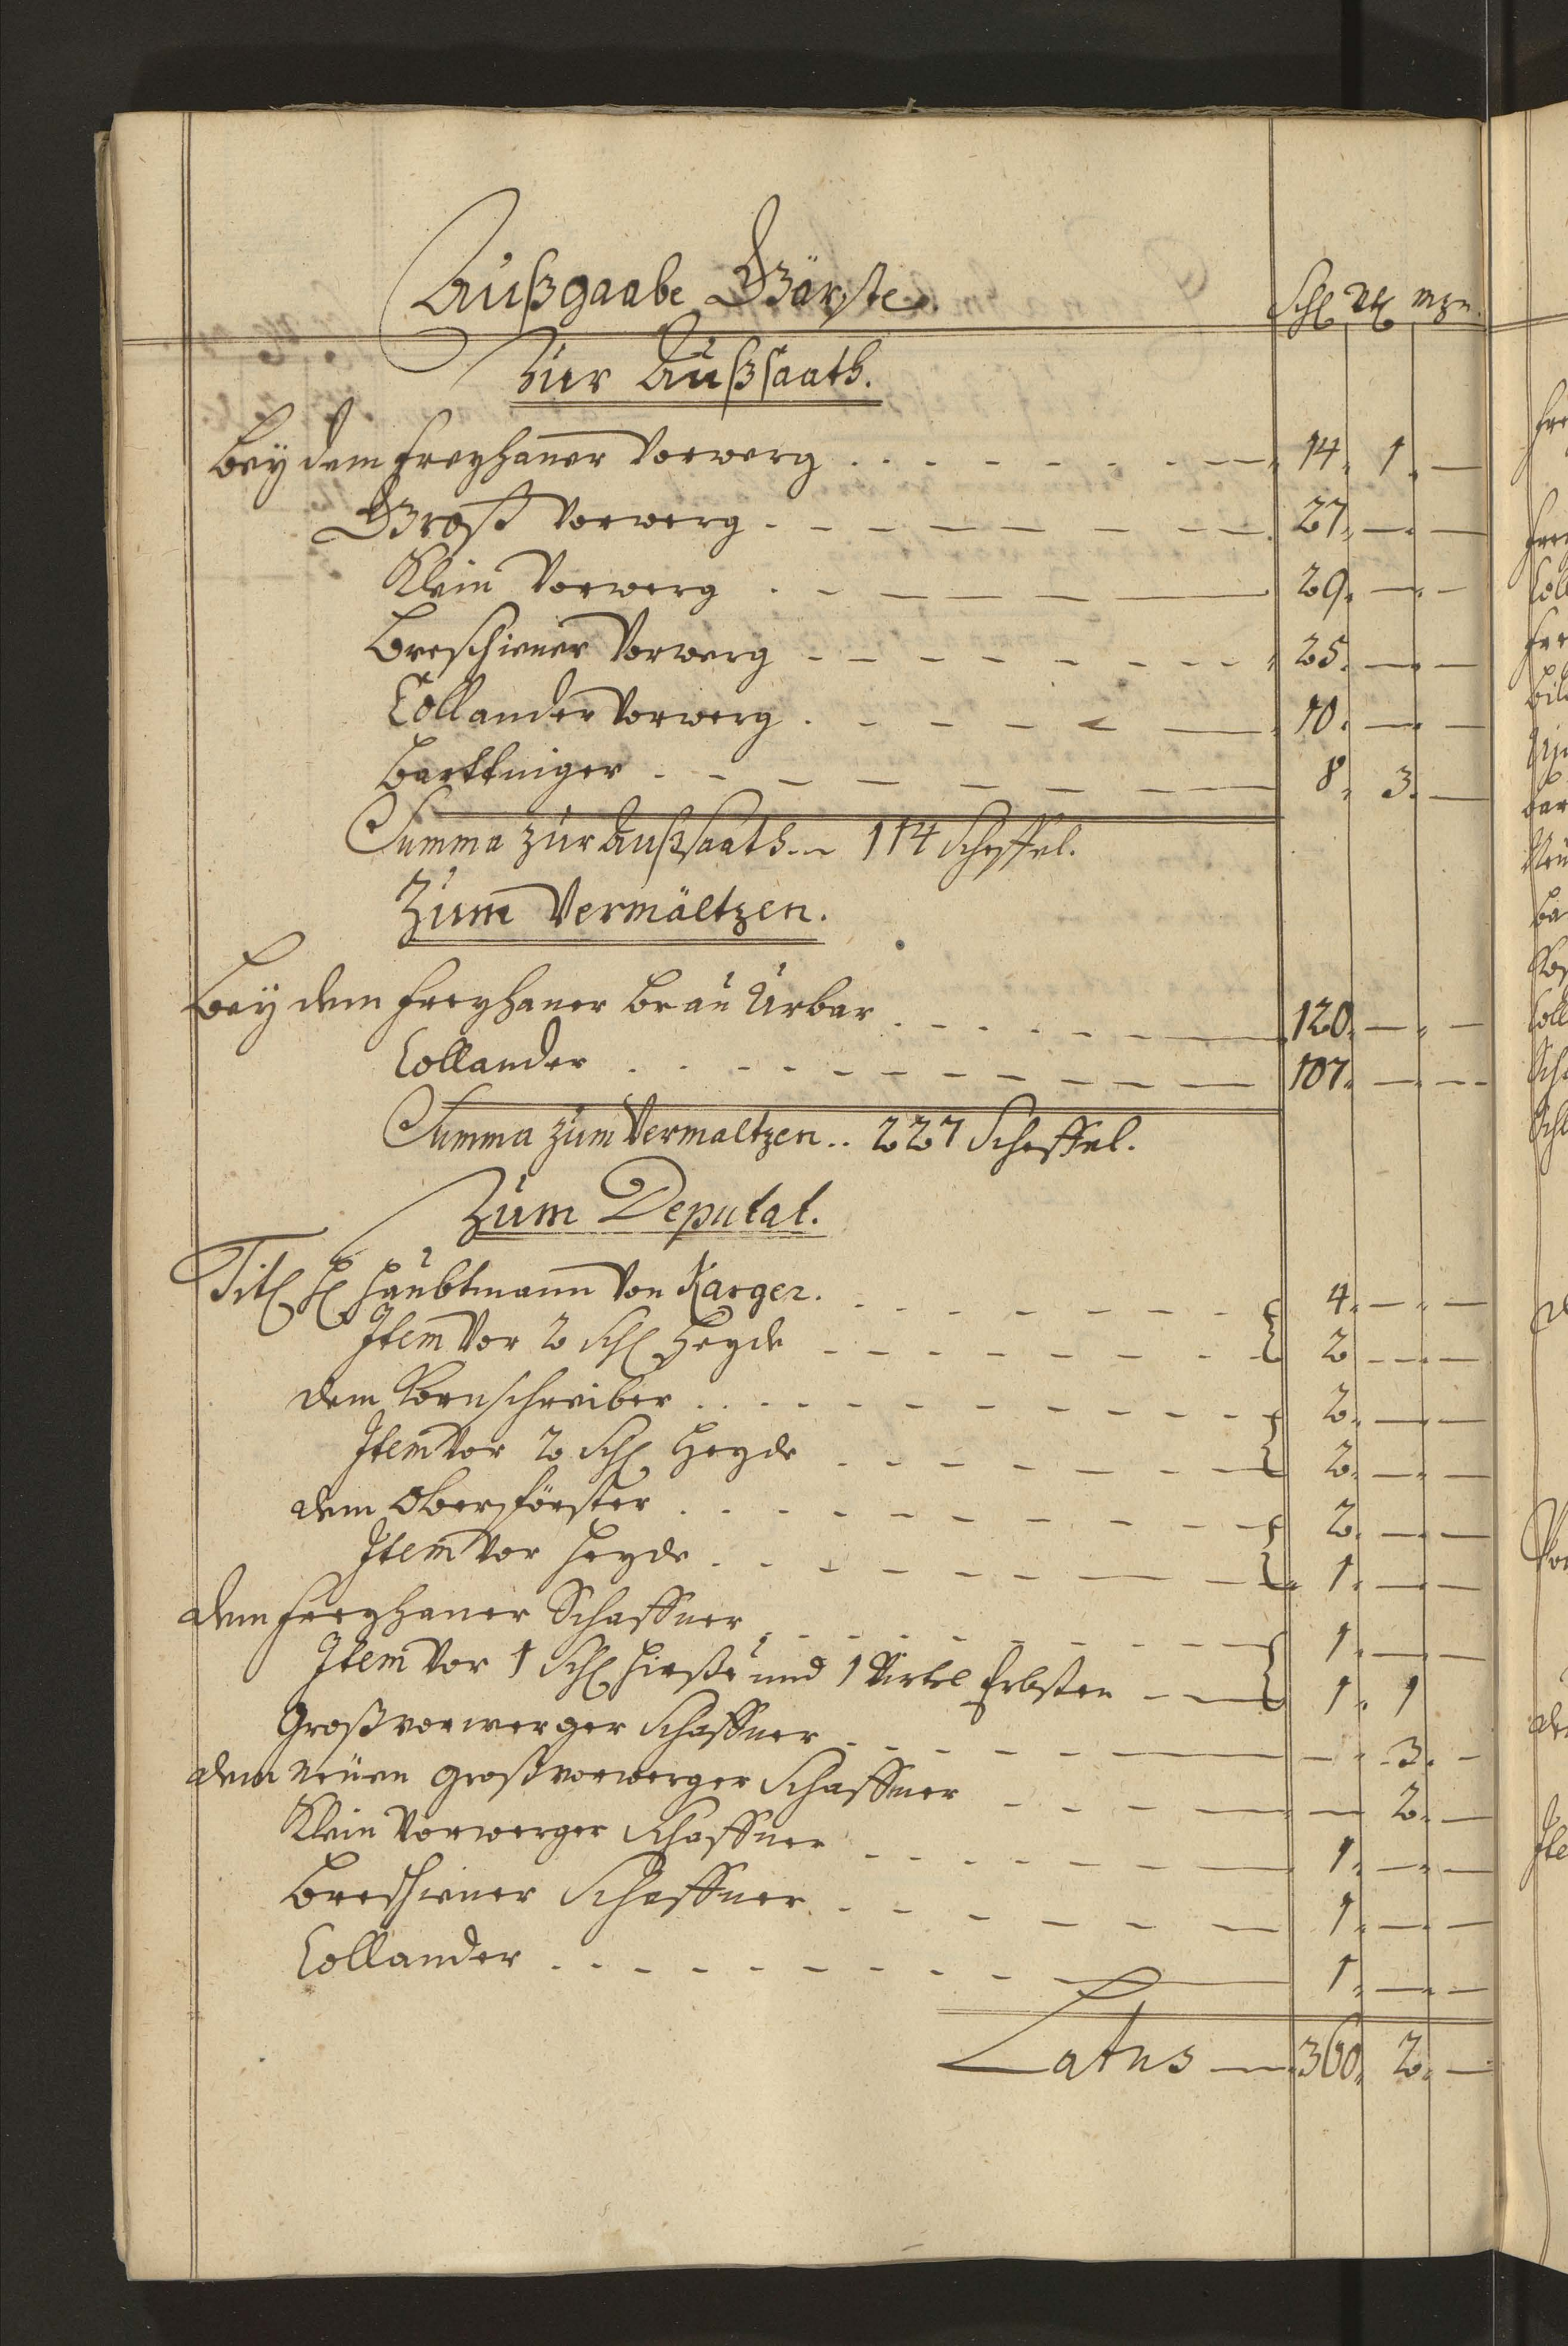 Außgaabe Gärste. Schl Vtl mzn
Zur Außsaath.
Bey dem Freyhaner Vorwerg 14. 1. —
Groß Vorwerg 27. — —
Klein Vorwerg 29. — —
Breschiner Vorwerg 25. — —
Collander Vorwerg 10. — —
Barttniger 8. 3. —
Summa zur Außsaath 114 Scheffel.
Zum Vermältzen.
Bey dem Freyhaner Brau Urbar 120. — —
Collander 107. — —
Summa zum Vermaltzen .. 227 Scheffel.
Zum Deputat.
Titl H Haubtmann von Karger. 4. — —
Item vor 2 Schl Heyde 2 — —
dem Kornschreiber 2. — —
Item vor 2 Schl Heyde 2. — —
dem Oberförster 2. — —
Item vor Heyde 1. — —
dem Freyhaner Schaffner 1. — —
Item vor 1 Schl Hierße und 1 Virtel Erbßen 1. 1
Großvorwerger Schaffner — 3. —
dem neuen Großvorwerger Schaffner — 2. —
Klein Vorwerger Schaffner 1. — —
Breschiner Schaffner 1. — —
Collander 1. — —
Latus 360. 2. —